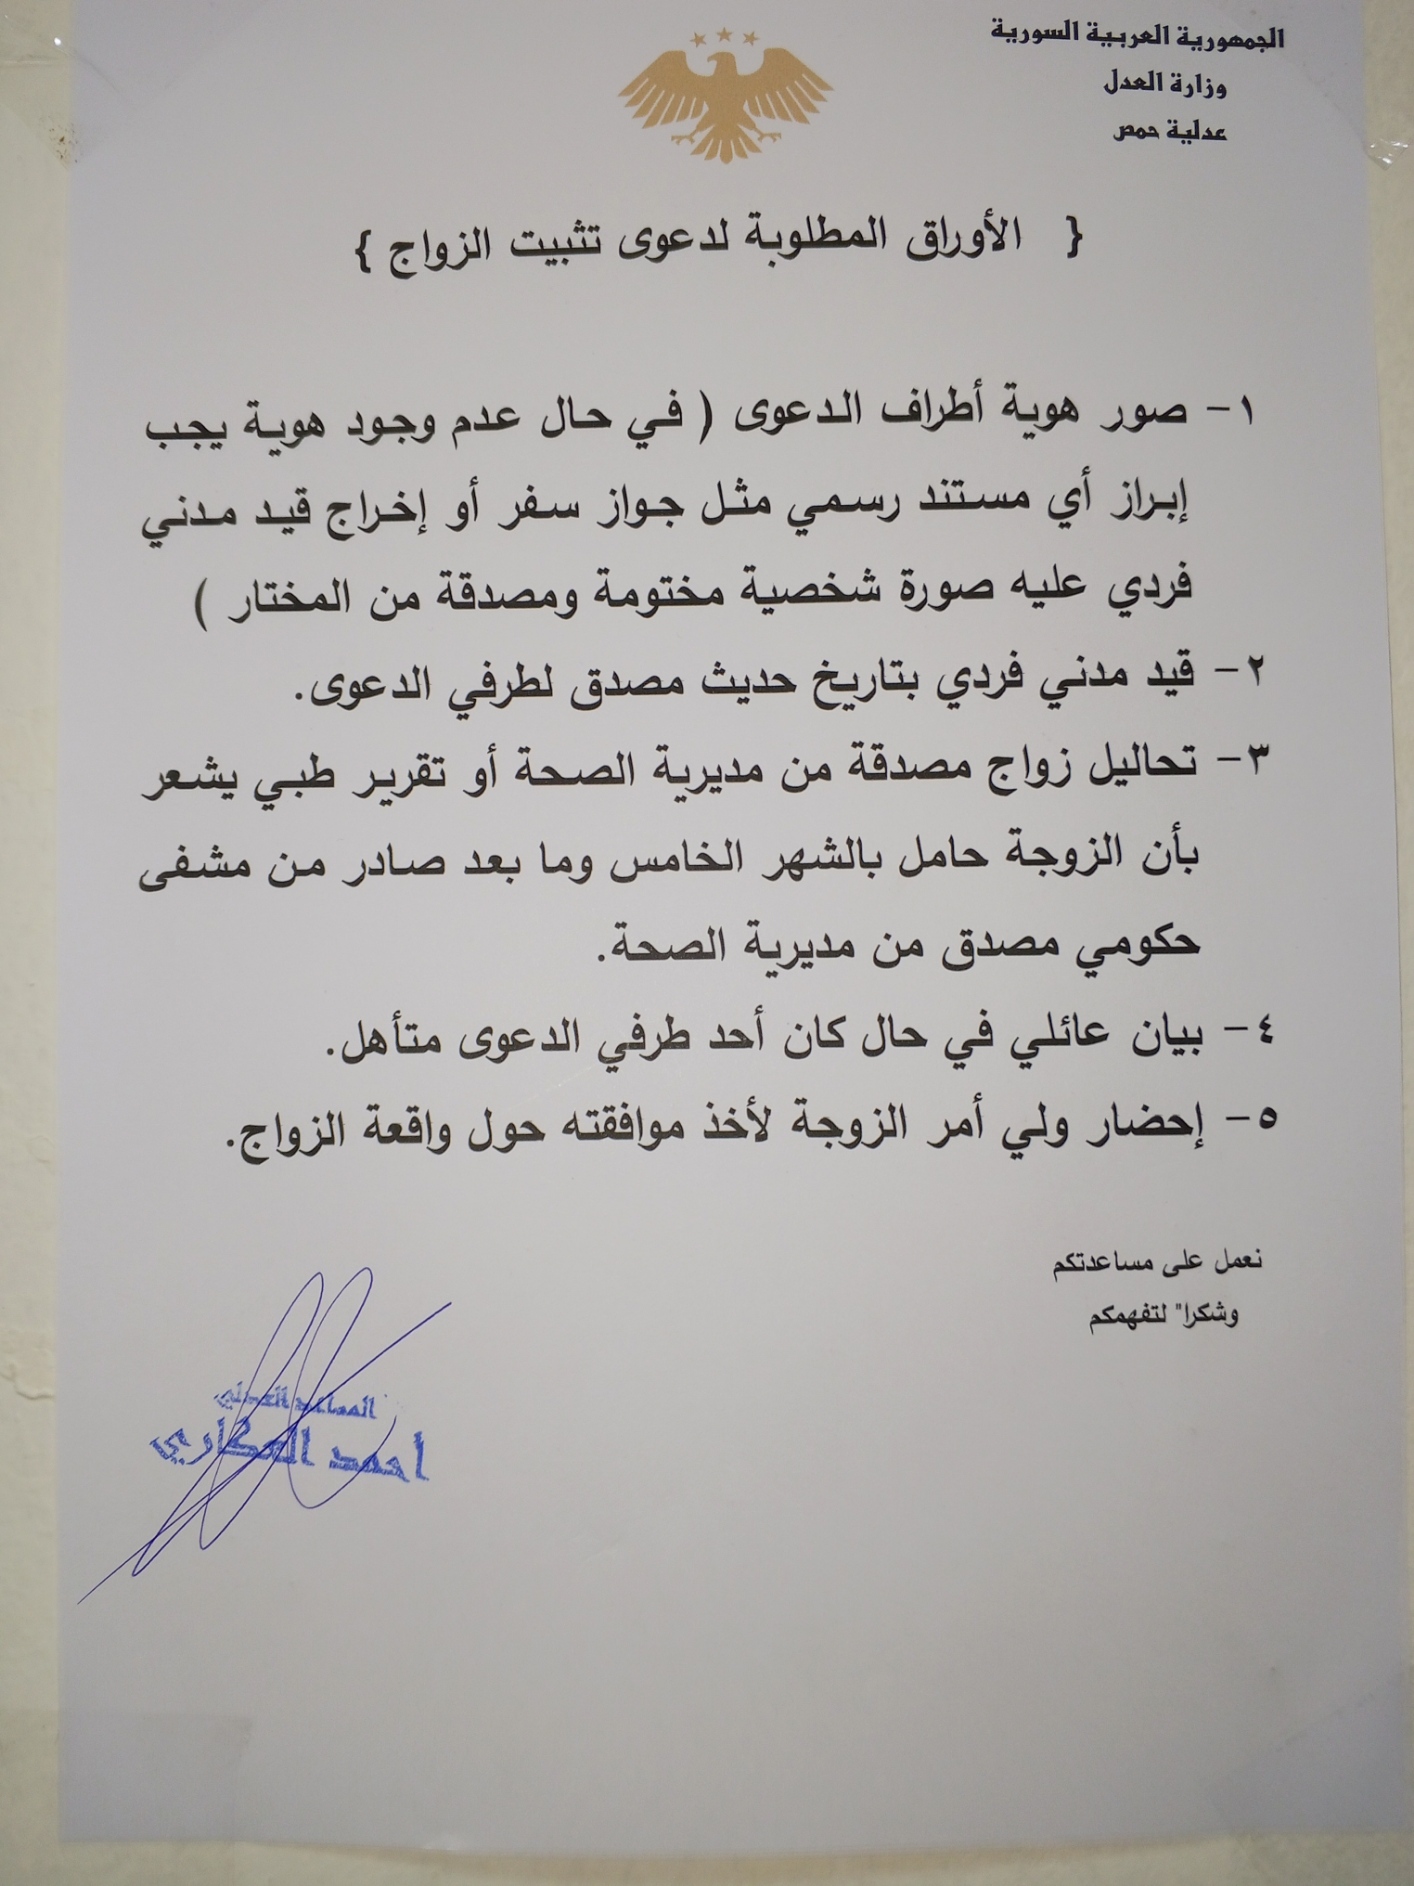 الجمهورية العربية السورية
وزارة العدل
عدلية حمص
{ الأوراق المطلوبة لدعوى تثبيت الزواج }
١- صور هوية أطراف الدعوى ( في حال عدم وجود هوية يجب
إبراز أي مستند رسمي مثل جواز سفر أو إخراج قيد مدني
فردي عليه صورة شخصية مختومة ومصدقة من المختار )
٢- قيد مدني فردي بتاريخ حديث مصدق لطرفي الدعوى.
٣- تحاليل زواج مصدقة من مديرية الصحة أو تقرير طبي يشعر
بأن الزوجة حامل بالشهر الخامس وما بعد صادر من مشفى
حكومي مصدق من مديرية الصحة.
٤- بيان عائلي في حال كان أحد طرفي الدعوى متأهل.
٥- إحضار ولي أمر الزوجة لأخذ موافقته حول واقعة الزواج.
نعمل على مساعدتكم
وشكرا" لتفهمكم
المساعد العدلي
أحمد العكاري